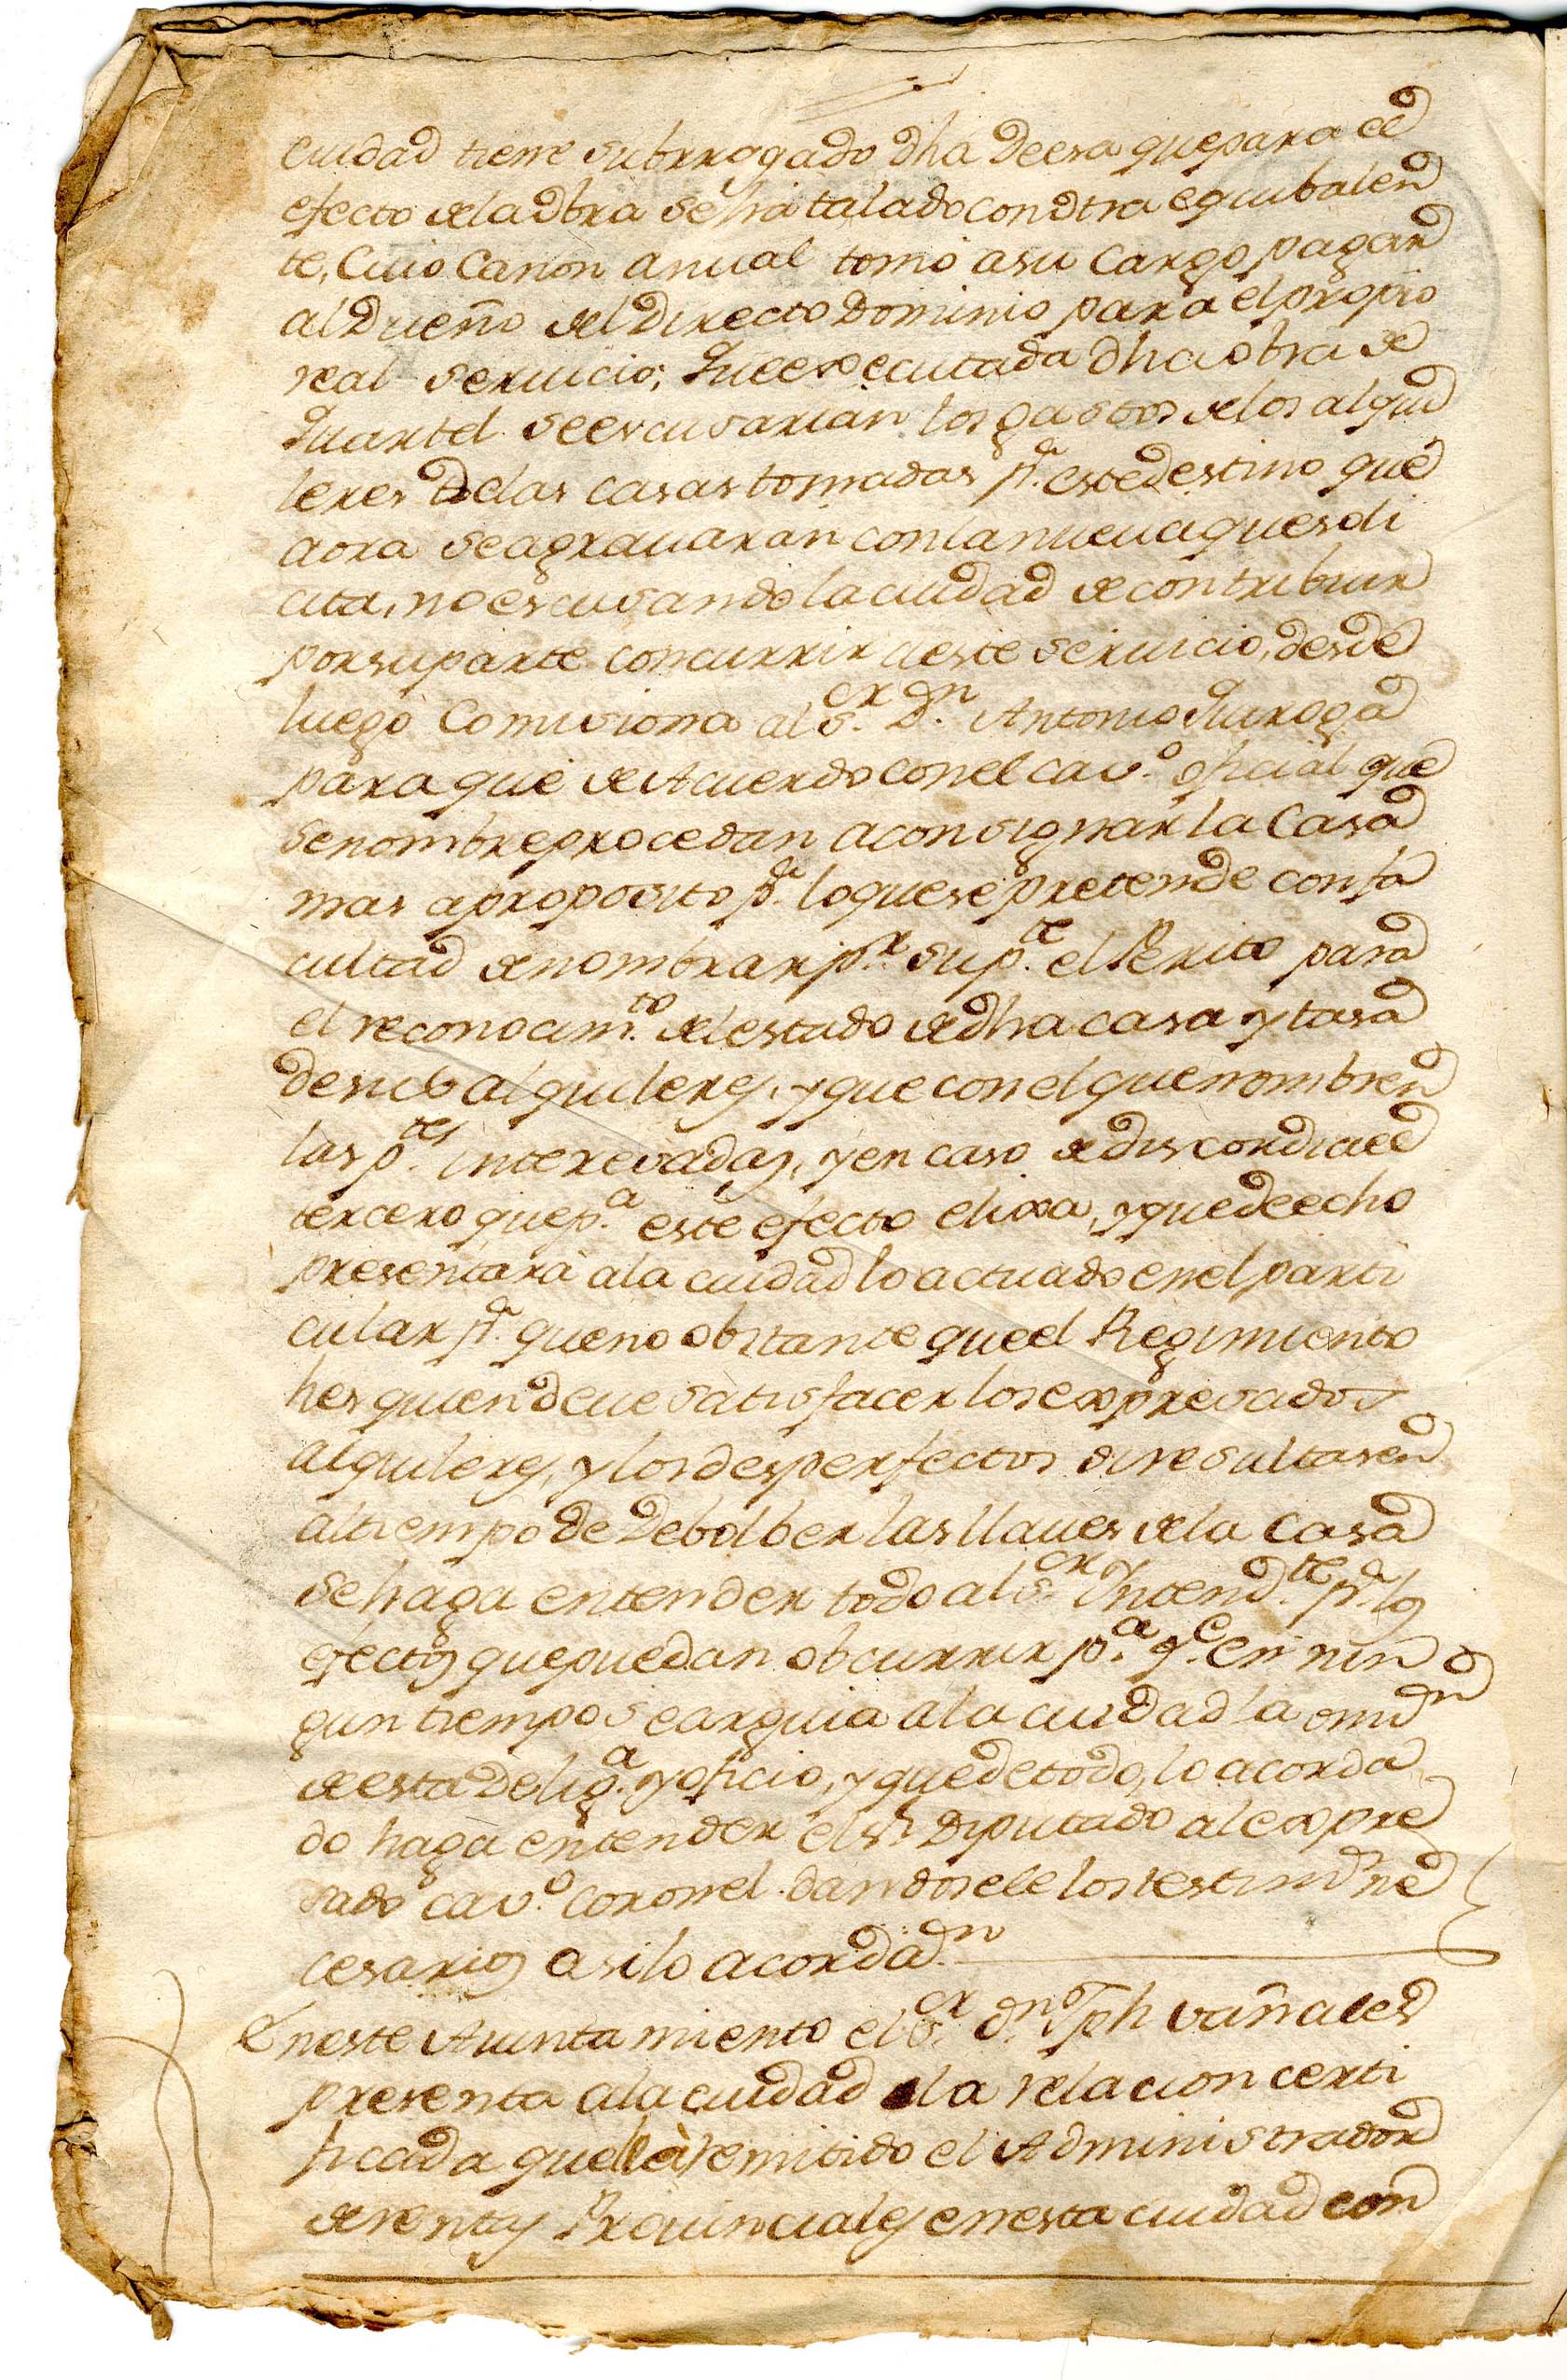 ciudad tiene subrrogado dha Deesa que para el
efecto de la obra se ha talado con otra equibalen
te, Cuio Canon anual tomó a su Cargo pagar
al Dueño del Directo Dominio para el propio
real seruicio; Que executada dha obra de
Quartel se escusarian los gastos de los alqui
leres de las casas tomadas p.ª este destino que
aora se agrauaran con la nueua que soli
cita, no escusando la ciudad de contribuir
por su parte concurrir a este seruicio, desde
luego Comisiona al S.or D.n Antonio Quiroga
para que de Acuerdo con el cav.o oficial que
se nombre procedan a consignar la Casa
mas aproposito p.ª lo que se pretende con fa
cultad de nombrar p.r su p.te el Perito para
el reconocim.to del estado de dha casa y tasa
de sus alquileres, y que con el que nombren
las p.tes interesadas, y en caso de discordia el
tercero que p.a este efecto elixa, y que de echo
presentará a la ciudad lo actuado en el parti
cular p.ª que no obstante que el Regimiento
hes quien deue satisfacer los expresados
alquileres, y los desperfectos si resultasen
al tiempo de Debolber las llaues de la Casa
se haga entender todo al S.or Intend.te p.ª los
efectos que puedan obcurrir p.a q.e en nin
gun tiempo se arguia a la ciudad la omis.on
de esta Delig.a y oficio, y que de todo, lo acorda
do haga entender el S.r Diputado al expre
sado cav.o Coronel dandosele los testim.os ne
cesarios asi lo acordaron
En este Aiuntamiento el S.or D.n Jph vañales
presenta a la ciudad la relacion certi
ficada que le à remitido el Administrador
de rentas Prouinciales en esta ciudad con